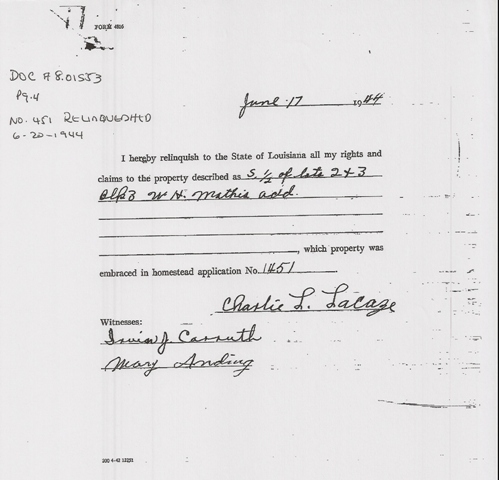 FORM 4816
DOC # 8.01553
Pg. 4
No. 451 RELINQUESHED
6-20-1944
June 17 1944
I hereby relinquish to the State of Louisiana all my rights and
claims to the property described as S. 1/2 of lots 2 & 3
Blk 3 W H. Mathis add.
, which property was
embraced in homestead application No. 1451
Charlie L. LaCaze
Witnesses:
Irvin J. Carruth
Mary Anding